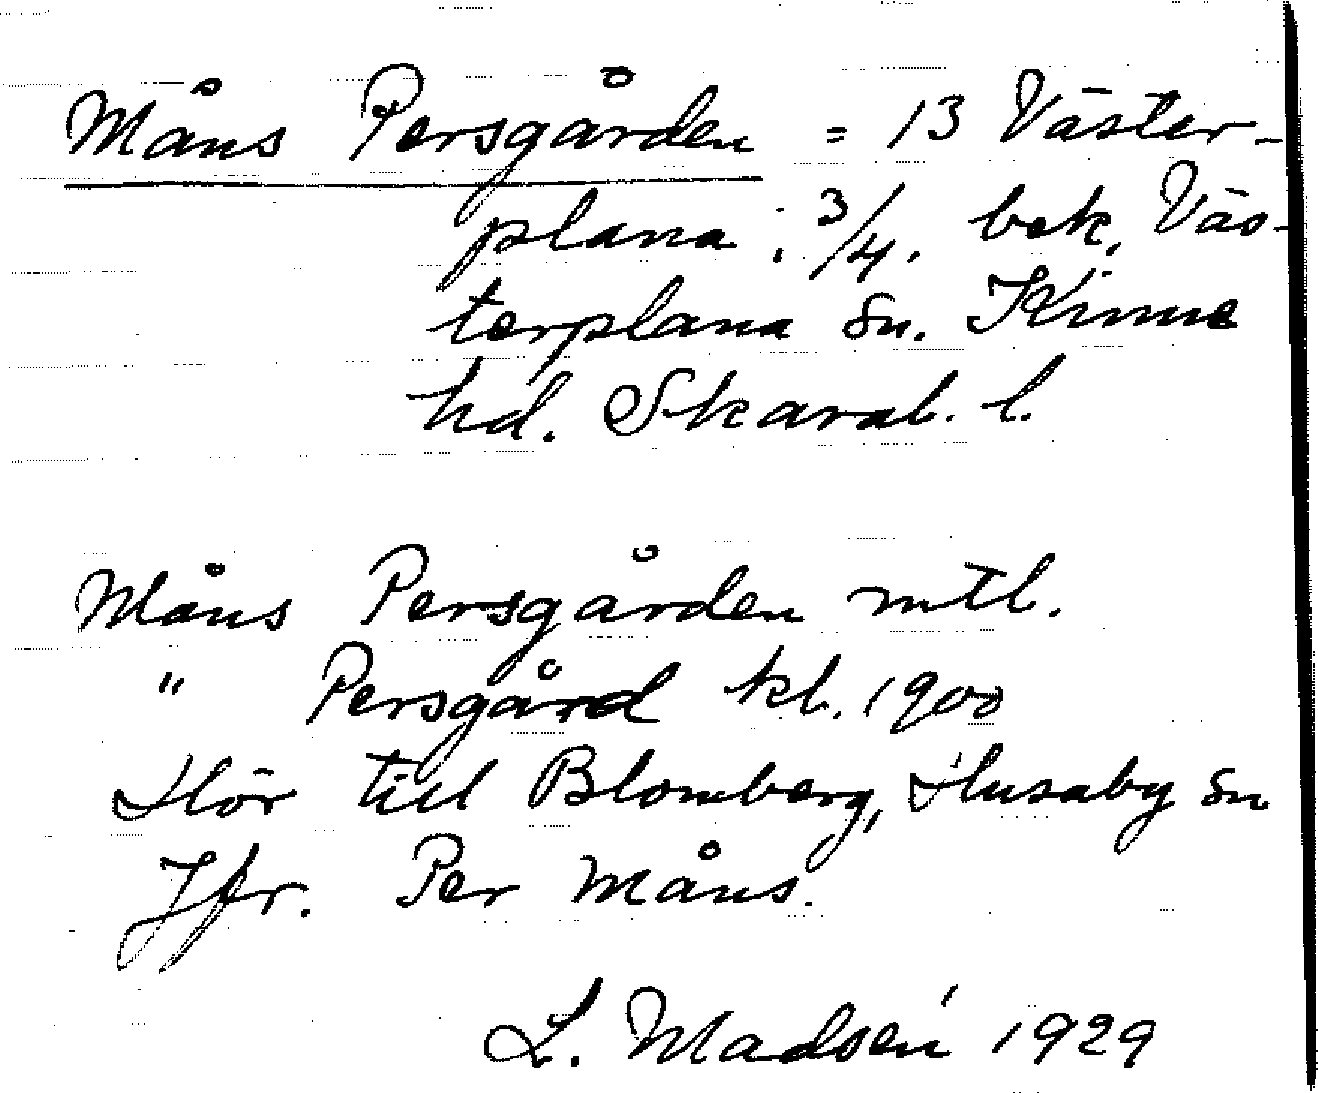 Måns Persgården = 13 Väster-
plana. 3/4. bek, Väs-
terplana sn. Kinne
hd. Skarab. l.
Måns Persgården mtl.
" Persgård kb. 1900
Hör till Blomberg, Husaby sn
Jfr. Per Måns.
L. Madsén 1929